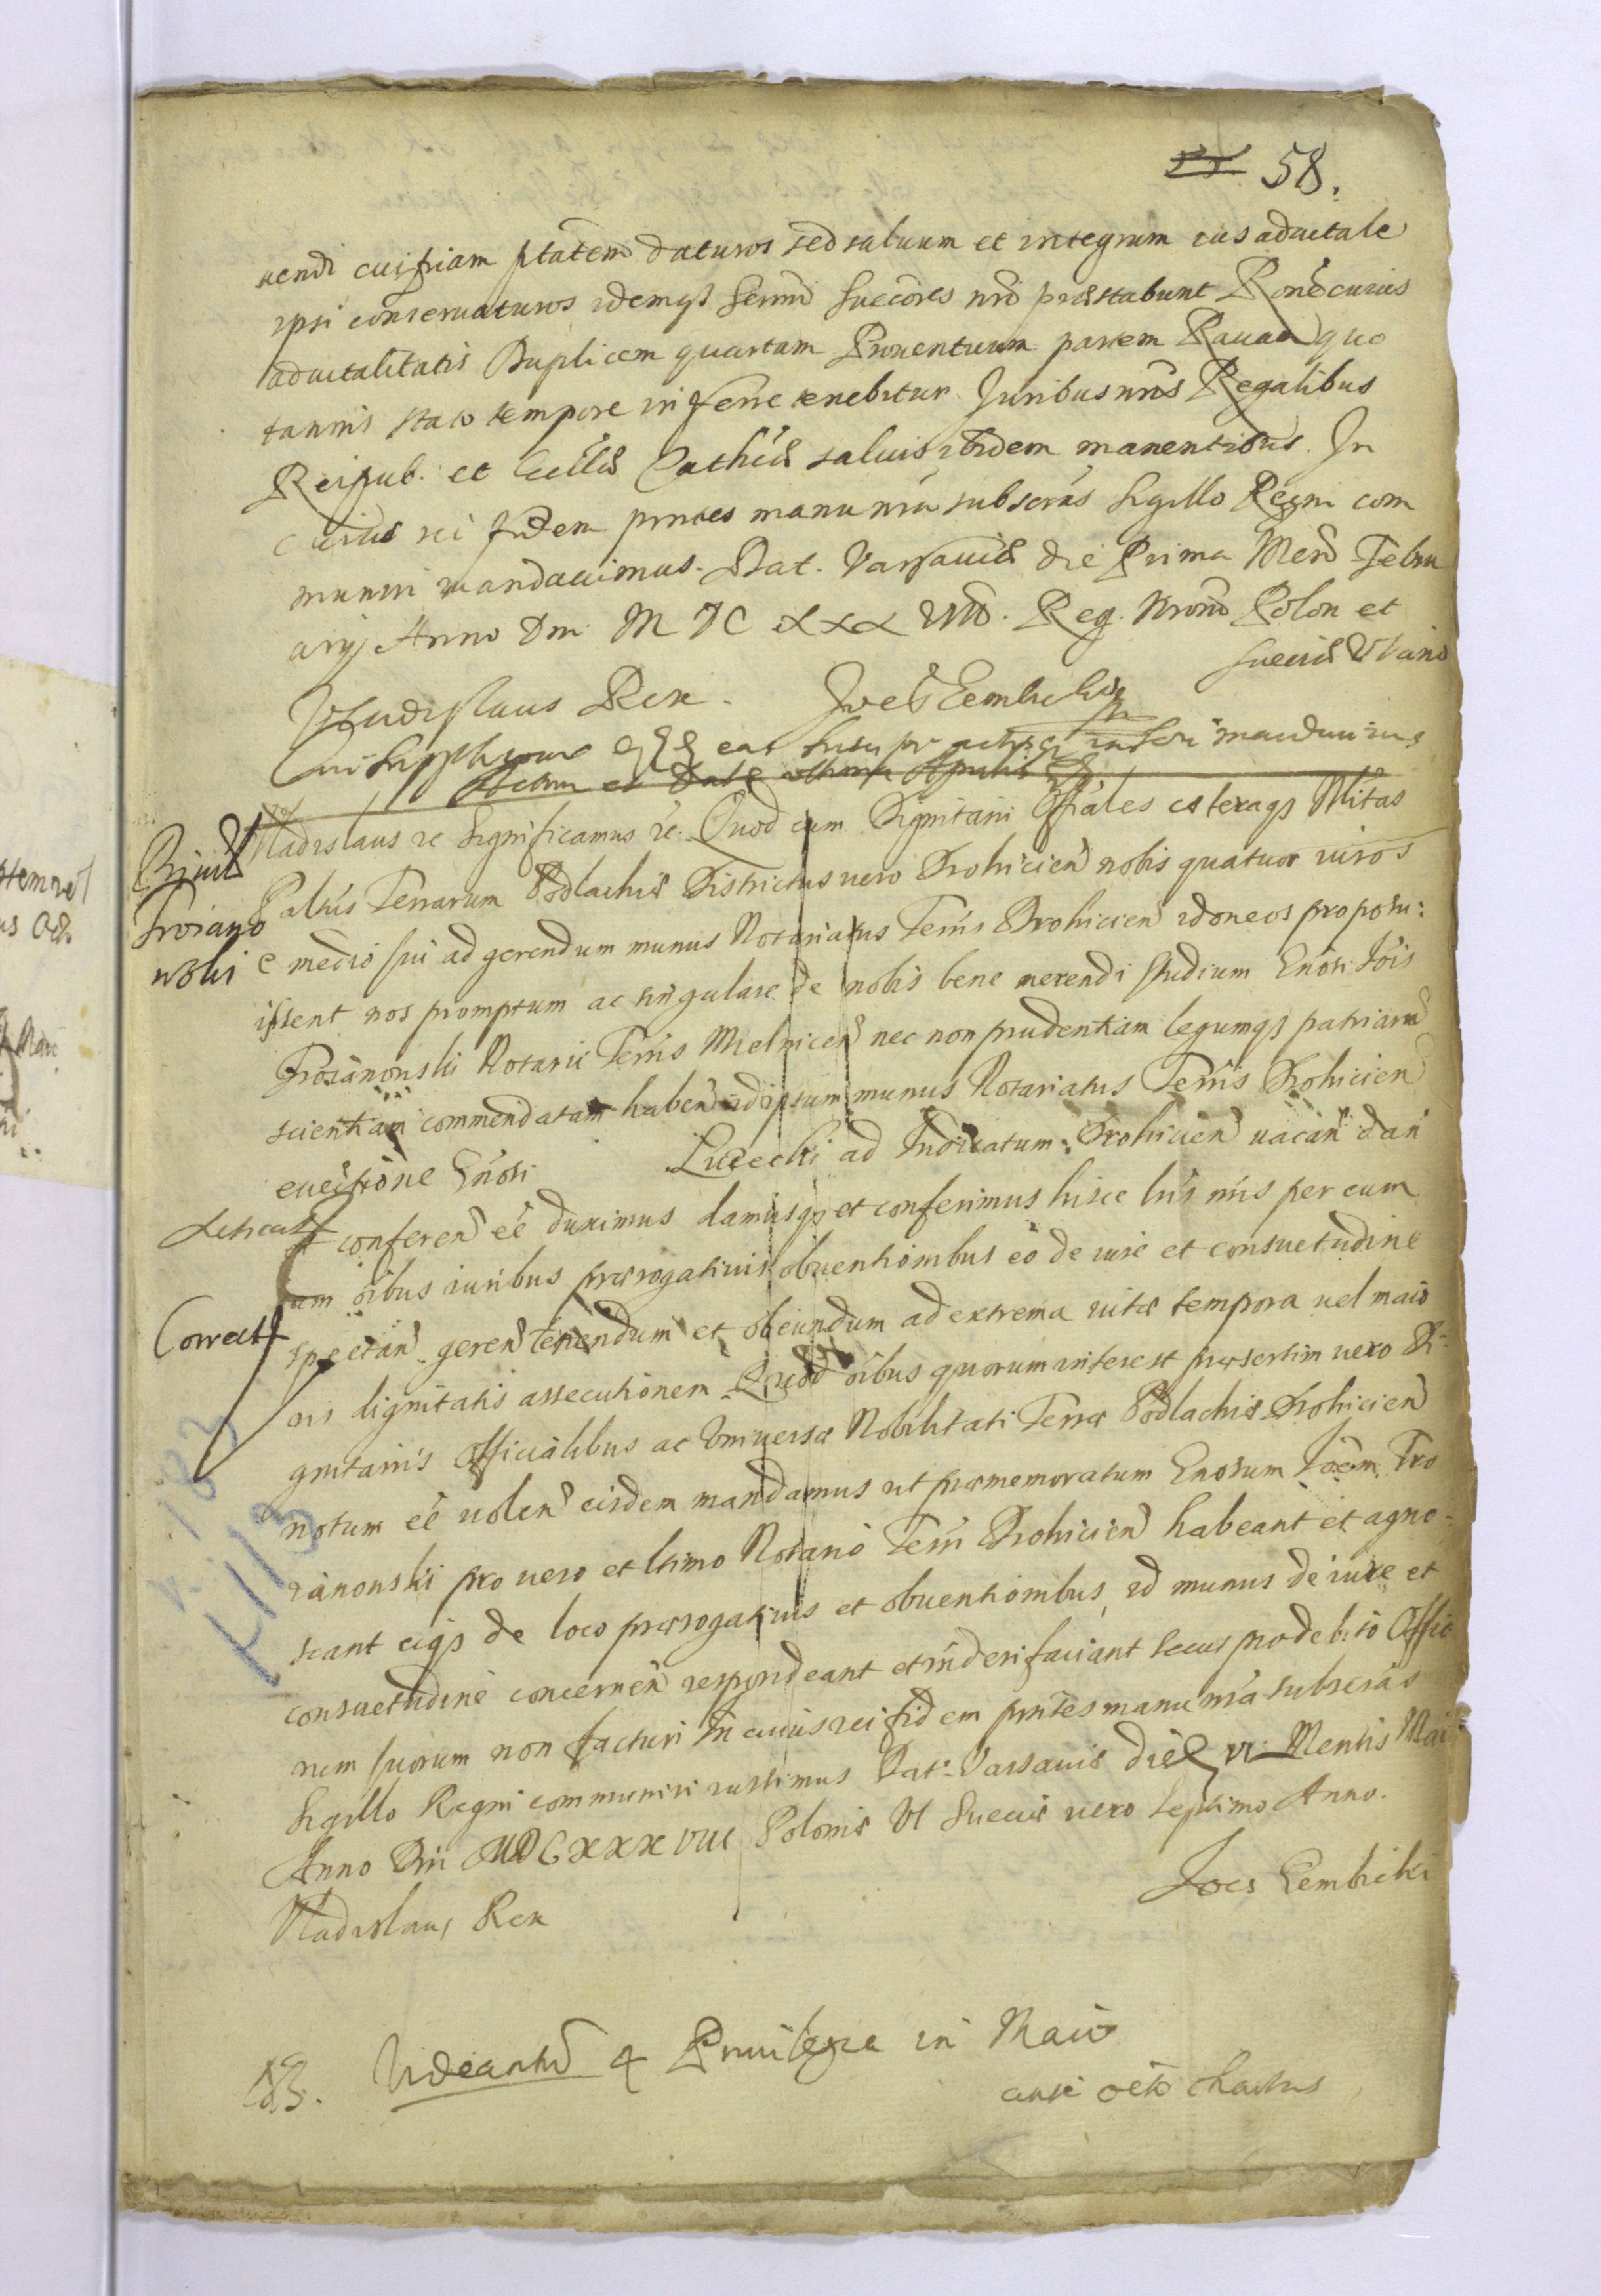 58.
uendi cuipiam ptatem daturos sed saluum et integrum ius aduitale
ipsi conseruaturos idemqs Sermi Succores nri præstabunt Rone cuius
aduitalitatis Duplicem quartam Prouentuum partem Rauam quo
tannis stato tempore inferre tenebitur. Juribus nris Regalibus
Reipub. et Ecclæ Cathcæ saluis ibidem manentibus. In
cuius rei fidem pntes manu nra subscras Sigillo Regni com
muniri mandauimus. Dat. Varsauiæ die Prima Mens Febru
arij Anno Dni M DC XXX VIII. Reg. Nrorum Polon et
Sueciæ
Vladislaus Rex. Joes Lembicki
Vladislaus rc Significamus rc. Quod cum Dignitarii Offiales cæteraqs Nlitas
Priuil
Troiano
wski
Paltus Terrarum Podlachiæ Districtus uero Drohicien nobis quatuor uiros
e medio sui ad gerendum munus Notariatus Terris Drohicien idoneos proposu:
issent nos promptum ac singulare de nobis bene merendi studium Gnosi Jois
Trojanowski Notarii Terris Mielnicen nec non prudentiam legumqs patriarum
scientiam commendatam haben id ipsum munus Notariatus Terris Drohicien
euectione Gnosi Lucecki ad Judicatum Drohicien uacan dan
et conferen eé duximus damusqs et conferimus hisce lris nris per eum
cum oibus iuribus prærogatiuis obuentionibus eo de iure et consuetudine
Correct
spectan geren tenendum et obeundum ad extrema uitæ tempora uel maio
ris dignitatis assecutionem Quod oibus quorum interest præsertim uero Di-
gnitariis Officialibus ac Vniuersæ Nobilitati Terræ Podlachiæ Drohicien
notum eé uolen eisdem mandamus ut præmemoratum Gnosum Joem Tro
ianowski pro uero et ltimo Notario Terri Drohicien habeant et agno-
scant eiqs de loco prærogatiuis et obuentionibus id munus de iure et
consuetudine concernen respondeant et inderi faciant secus pro debito Officio
rum suorum non facturi In cuius rei fidem pntes manu nra subscras
Sigillo Regni communiri iussimus Dat. Varsauiæ die VI Mensis Maii
Anno Dni MDCXXXVIII Poloniæ VI Sueciæ uero Septimo Anno.
Vladislaus Rex Joes Lembicki
NB. Videantur 4 Priuilegia in Maio
ante octo chartas